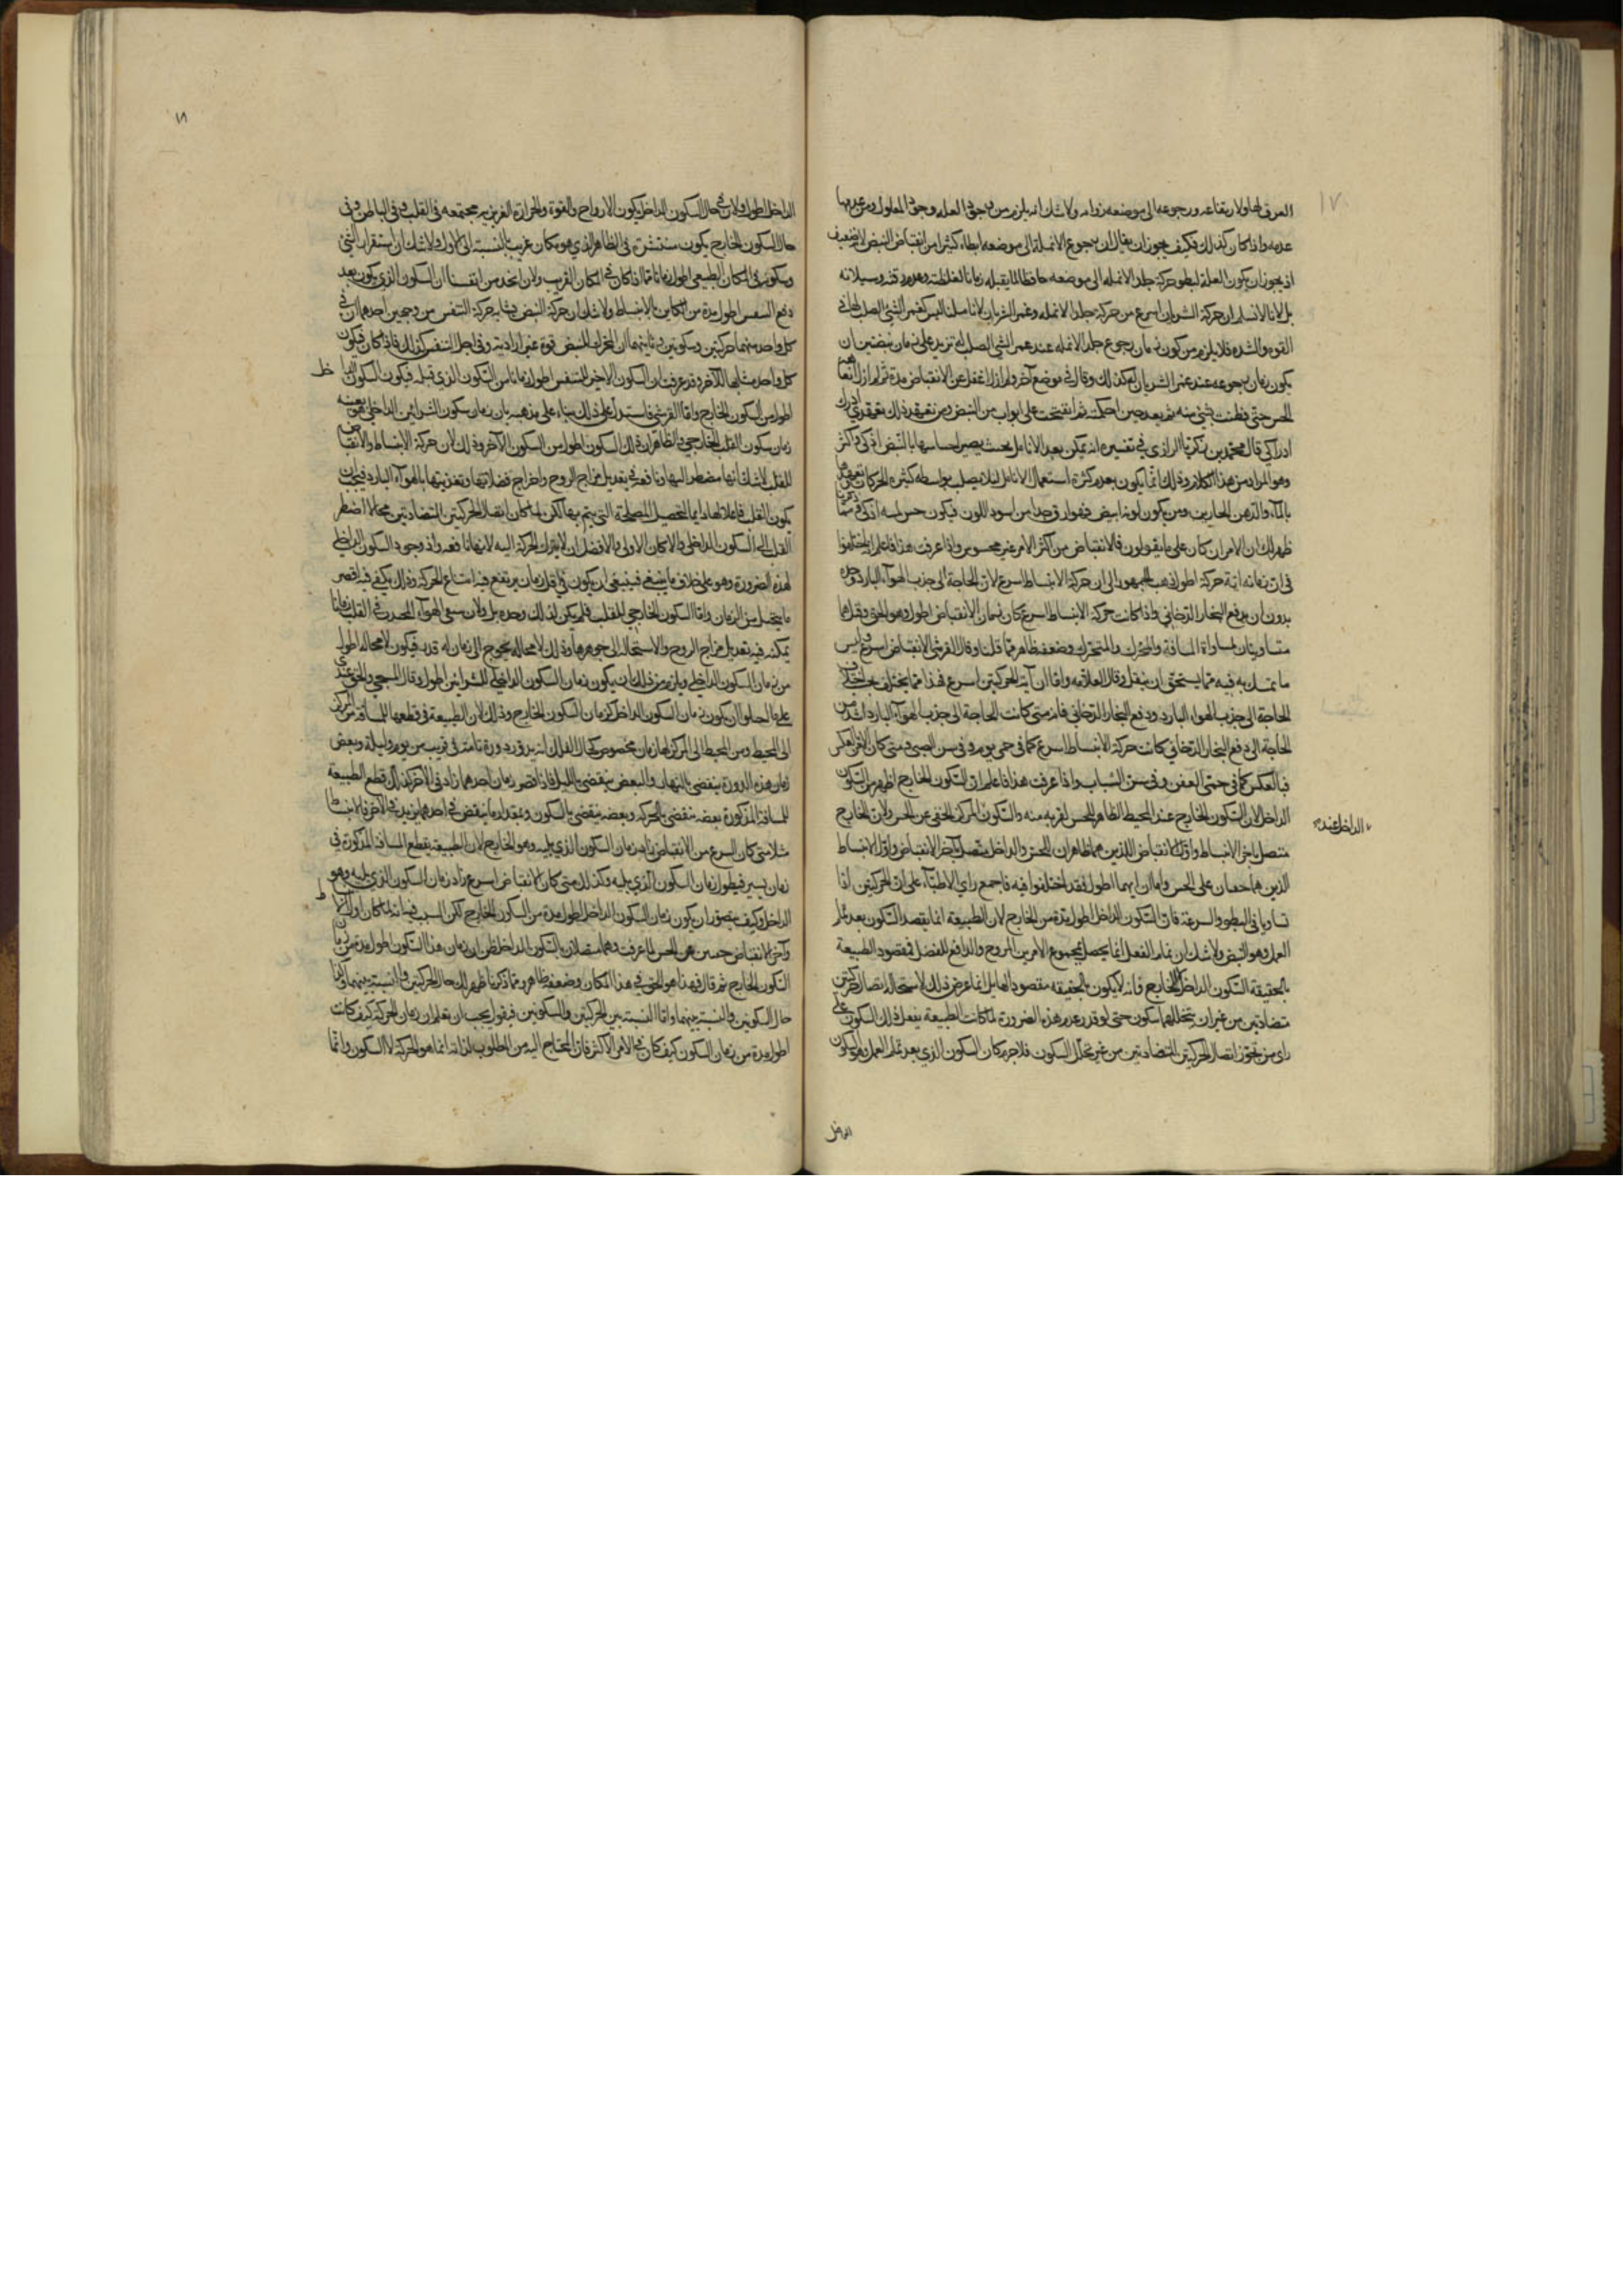 ١٧٠
العرق لها ولا ارتفاعه ورجوعه الى موضعه زوامه ولا شك انه يلزم من وجود العلة وجود المعلول ومن عدمها
عدمه واذا كان كذلك فكيف يجوز ان يقال ان رجوع الانملة الى موضعه ابطاء كثيرا من انقباض النبض الضعيف
اذ يجوز ان يكون العلة لبطو حركة جلد الانملة الى موضعه حافظا لما يقبله زمانا لغلظته وعدم رقته وسيلانه
بل لانا لا نسلم ان حركة الشريان اسرع من حركة جلد الانملة وغمز الشريان لانا ملنا ليس كغمز الشئ الصلب لها في
القوة والشدة فلا يلزم من كون زمان رجوع جلد الانملة عند غمز الشئ الصلب له تزيد على زمان نبضتين ان
يكون زمان رجوعه عند غمز الشريان له كذلك وقال في موضع آخر ولم ازل اغفل عن الانقباض مدة ثم لم ازل اتعاهد
الحس حتى فطنت بشئ منه ثم بعد حين احكمته ثم انفتحت على ابواب من النبض ومن تعهد ذلك تعهدي ادرك
ادراكي قال محمد بن زكريا الرازي في تفسيره انه يمكن بعد الانامل بحيث يصير احساسها بالنبض اذكى واكثر
وهو المراد من هذا الكلام وذلك انما يكون بعدم كثرة استعمال الانامل لئلا يصلب بواسطة كثرة الحركات
بالماء والدهن الحارين ومن يكون لونه ابيض فهو ارق جلدا من اسود اللون فيكون حس لمسه اذكى
ظهر لك ان الامر ان كان على ما يقولون فالانقباض من اكثر الامر غير محسوس واذا عرفت هذا فاعلم انهم اختلفوا
في ان زمانه اية حركة اطول ذهب الجمهور الى ان حركة الانبساط اسرع لان الحاجة الى جذب الهواء البارد وحده
بدون ان يدفع البخار الدخاني واذا كانت حركة الانبساط اسرع كان زمان الانقباض اطول وهو الحق وقيل هما
متساويتان لمساواة المسافة والمحرك والمتحرك وضعفه ظاهر مما قلنا وقال القرشي الانقباض اسرع وليس
ما تمسك به فيه مما يستحق ان ينقل وقال العلامة واما ان اية الحركتين اسرع فهذا مما يختلف بحسب اختلاف
الحاجة الى جذب الهواء البارد ودفع البخار الدخاني فانه متى كانت الحاجة الى جذب الهواء البارد اشد من
الحاجة الى دفع البخار الدخاني كانت حركة الانبساط اسرع كما في حمى يوم وفي سن الصبى ومتى كان الامر بالعكس
فبالعكس كما في حمى العفن وفي سن الشباب واذا عرفت هذا فاعلم ان السكون الخارج اظهر من السكون
الداخل لان السكون الخارج عند المحيط الظاهر للحس لقربه منه والسكون المركز الخفي عن الحس ولان الخارج
الداخل عند
متصل باخر الانبساط واول الانقباض اللذين هما ظاهران للحس والداخل متصل باخر الانقباض واول الانبساط
الذين هما خفيان على الحس واما ان ايهما اطول فقد اختلفوا فيه فاجمع راي الاطباء على ان الحركتين اذا
تساويا في البطو والسرعة فان السكون الداخل اطول مدة من الخارج لان الطبيعة انما يقصد السكون بعد تمام
العمل وهو النبض ولا شك ان تمام الفعل انما يحصل بمجموع الامرين المروح والدافع للفضل فمقصود الطبيعة
بالحقيقة السكون الداخل لا الخارج فانه لا يكون بالحقيقة مقصودا لها بل انما عرض ذلك لاستحالة اتصال حركتين
متضادتين من غير ان يتخللهما سكون حتى لو قدر عدم هذه الضرورة لما كانت الطبيعة يفعل ذلك السكون على
راي من يجوز اتصال الحركتين المتضادتين من غير تخلل السكون فلا جرم كان السكون الذي بعد تمام العمل وهو السكون
الداخل
الداخل اطول ولان في حال السكون الداخل يكون الارواح والقوة والحرارة الغريزية مجتمعه في القلب وفي الباطن وفي
حال السكون الخارج يكون منتشرة في الظاهر الذي هو مكان غريب بالنسبة الى الاول ولا شك ان استقرار الشئ
وسكونه في المكان الطبيعي اطول زمانا مما اذا كان في المكان الغريب ولان نجد من انفسنا ان السكون الذي يكون بعد
دفع النفس اطول مدة من الكاين بالانبساط ولا شك ان حركة النبض مشابه حركة التنفس من وجهين احدهما ان في
كل واحد منهما حركتين وسكونين وثانيهما ان المحرك للنبض قوة غير ارادية وفي اجل التنفس كذلك فاذا كان فيكون
كل واحد مشابها للآخر وقد عرفت ان السكون الاخير للتنفس اطول زمانا من السكون الذي قبله فيكون السكون الداخل
اطول من السكون الخارج واما القرشي فاستدل على ذلك بناء على مذهبه بان زمان سكون الشرايين الداخلي هو بعينه
زمان سكون القلب الخارجي والظاهر ان ذلك السكون اطول من السكون الآخر وذلك لان حركة الانبساط والانقباض
للقلب لا شك انها مضطر اليها ونافعة في تعديل مزاج الروح واخراج فضلاتها وتغذيتها بالهواء البارد فيجب ان
يكون القلب فاعلا لها دايما لتحصيل المصلحة التي يتم بها لكن لما كان اتصال الحركتين المتضادتين محالا اضطر
القلب الى السكون الداخلي والا كان الاولى والافضل ان لا يترك الحركة اليه لانها نافعة واذ وجود السكون الداخلي
لهذه الضرورة وهو على خلاف ما ينبغي فينبغي ان يكون في اقل زمان يرتفع فيه امتناع الحركة وذلك يكفي فيه اقصر
ما يتخيل من الزمان واما السكون الخارجي للقلب فلم يكن لذلك وحده بل ولان يبقى الهواء المجذوب في القلب زمانا
يمكنه فيه تعديل مزاج الروح والاستحالة الى جوهرها وذلك لا محالة يحوج الى زمان له قدر فيكون لا محالة اطول
من زمان السكون الداخلي ويلزم من ذلك ان يكون زمان السكون الداخلي للشرايين اطول وقال المسيحي والحق عندي
على ما الحلو ان يكون زمان السكون الداخل كزمان السكون الخارج وذلك لان الطبيعة في قطعها للمسافة من المركز
الى المحيط ومن المحيط الى المركز لها زمان مخصوص كحال الفلك انه يدور دورة تامة في قريب من يوم وليلة وبعض
زمان هذه الدورة ينقضي بالنهار والبعض ينقضي بالليل فاذا قصر زمان احدهما زاد في الآخر كذلك قطع الطبيعة
للمسافة المذكورة بعضه ينقضي بالحركة وبعضه ينقضي بالسكون وبمقدار ما ينقص في احدهما يزيد في الآخر فالانبساط
مثلا متى كان اسرع من الانقباض زاد زمان السكون الذي يليه وهو الخارج لان الطبيعة يقطع المسافة المذكورة في
زمان يسير فيطول زمان السكون الذي يليه وكذلك متى كان الانقباض اسرع زاد زمان السكون الذي يليه وهو
الداخل وكيف يتصور ان يكون زمان السكون الداخل اطول مدة من السكون الخارج لكن السبب فيه انه لما كان اول
وآخر الانقباض خفيين عن الحس لما عرفت وهما متصلان بالسكون الداخل ظن ان زمان هذا السكون اطول مدة من زمان
السكون الخارج ثم قال فهذا هو الحق في هذا المكان وضعفه ظاهر ومما ذكرنا ظهر لك حال الحركتين والنسبة بينهما
حال السكونين والنسبة بينهما واما النسبة بين الحركتين والسكونين فيقول يجب ان يعلم ان زمان الحركة كيف كانت
اطول مدة من زمان السكون كيف كان في الامر الاكثر فان المحتاج اليه من المطلوب لذاته انما هو الحركة لا السكون وانما